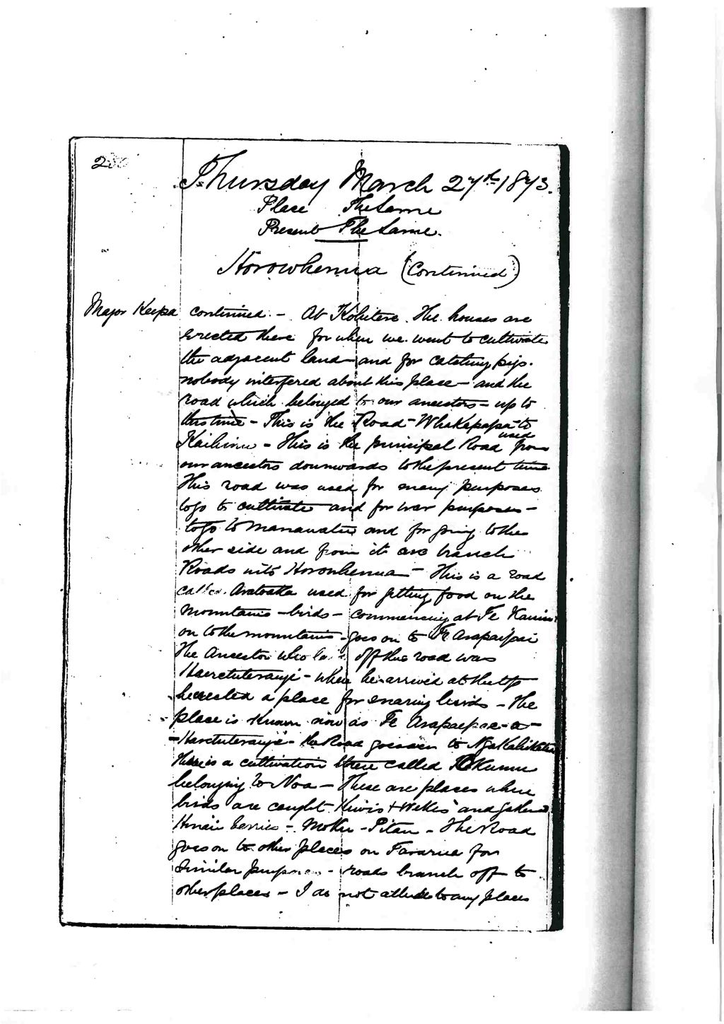 Thursday March 27th 1873.
Place The Same
Present The Same.
Horowhenua (Continued)
Major Keepa continued - At Kohitere. The houses are
erected there for when we went to cultivate
the adjacent land - and for catching pigs.
nobody interfered about this place - and the
road which belonged to our ancestors - up to
this time - This is the Road - Whakapapa to
This is the principal Road used from
our ancestors downwards to the present time
This road was used for many purposes
to go to cultivate and for war purposes -
to go to Manawatu and for going to the
other side and from it are branch
Roads into Horowhenua - This is a road
called used for getting food on the
mountains - birds - commencing at Te
on to the mountains - goes on to Te Arapaepae
The Ancestor who off this road was
Haretuterangi - when he arrived at the top
he erected a place for snaring birds - the
place is known now as Te Arapaepae-a-
-Haretuterangi - the Road goes on to
There is a cultivation there called
belonging to Noa - These are places where
birds are caught Kiwis & Wekas and gather
Hinau berries - The Road
goes on to other places on Tararua for
similar purposes - roads branch off to
other places - I do not allude to any places